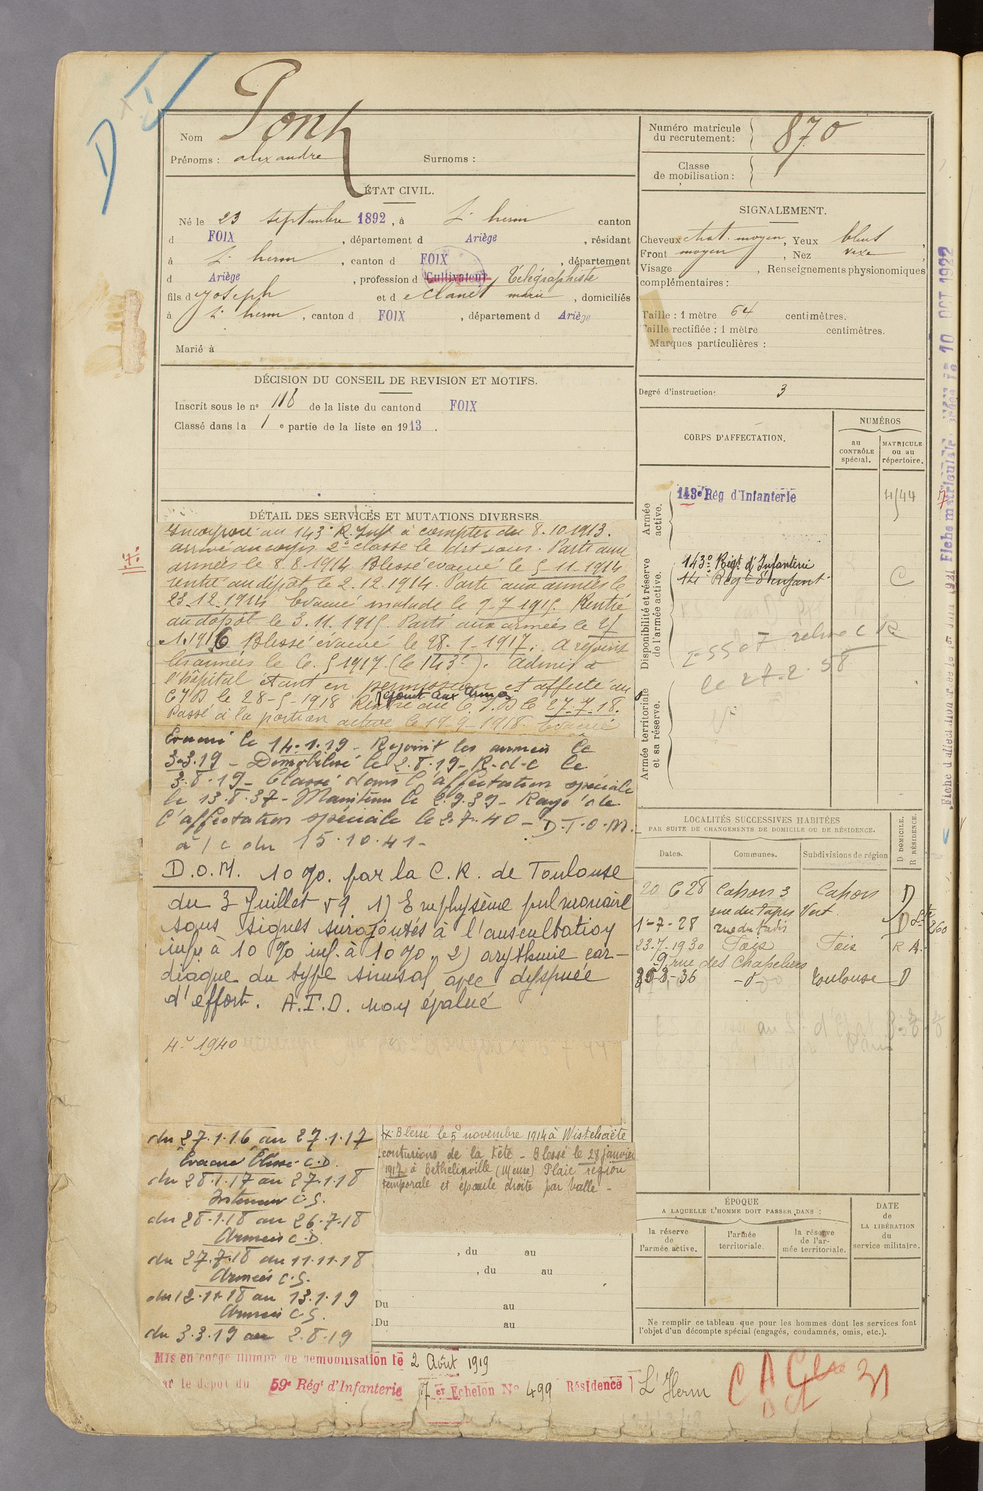 D I
Nom Pont
Prénoms : alexandre Surnoms :
ÉTAT CIVIL.
Né le 23 septembre 1892, à L'herm canton
d FOIX, département d Ariège, résidant
à L'herm, canton d FOIX, département
d Ariège, profession d Cultivateur Télégraphiste
fils d Joseph et d marie, domiciliés
à L'herm, canton d FOIX, département d Ariège
Marié à
DÉCISION DU CONSEIL DE REVISION ET MOTIFS.
Inscrit sous le n° 118 de la liste du canton d FOIX
Classé dans la 1e partie de la liste en 1913.
DÉTAIL DES SERVICES ET MUTATIONS DIVERSES.
Incorporé au 143e R. Inf. à compter du 8.10.1913.
arrivé au corps 2e classe le dit jour. Parti aux
armées le 8.8.1914 Blessé évacué le 5.11.1914
rentré au dépôt le 2.12.1914. Parti aux armées le
23.12.1914 Evacué malade le 7.7.1915. Rentré
au dépôt le 3.11.1915. Parti aux armées le 27
1.1916 Blessé évacué le 28.1.1917. A rejoint
les armées le 6.5.1917 (le 143e). Admis à
l'hôpital étant en permission et affecté au
le 28-5-1918 Rejoint aux armées le 27.7.18.
Passé à la portion active le 17.9.1918 Evacué
Evacué le 14.1.19 - Rejoint les armées le
3.3.19 - Démobilisé le 2.8.19 - R.d.c le
3.8.19 - Classé dans l'affectation spéciale
le 13.8.37 - Maintenu le 2.9.39 - Rayé de
l'affectation spéciale le 2.7.40 - D.T.O.M.
à / c du 15.10.41 -
D.O.M. 10 %. par la C.R. de Toulouse
du 3 Juillet 59. 1) Emphysème pulmonaire
sans signes surajoutés à l'auscultation
inf. à 10 % inf. à 10 %. 2) arythmie car-
diaque du type sinusal avec dyspnée
d'effort. A.I.D. non évalué
4.° 1940
du 27.1.16 au 27.1.17
Evacué Blessé C.D.
du 28.1.17 au 27.1.18
Intérieur C.S.
du 28.1.18 au 26.7.18
Armées C.D.
du 27.7.18 au 11.11.18
Armées C.S.
du 12.11.18 au 13.1.19
Armées C.S.
du 3.3.19 au 2.8.19
Blessé le 5 novembre 1914 à Wistchaëte
contusions de la tête - Blessé le 28 janvier
1917 à Bethelinville (Meuse) Plaie région
temporale et épaule droite par balle -
, du au
, du au
Du au
Du au
Mis en congé illimité de démobilisation le 2 Août 1919
par le dépôt du 59e Régt d'Infanterie 7er Echelon N° 499 Résidence L'Herm
Numéro matricule
du recrutement : 870
Classe
de mobilisation :
SIGNALEMENT.
Cheveux chat. moyen, Yeux bleus,
Front moyen, Nez vexe,
Visage , Renseignements physionomiques
complémentaires :
Taille : 1 mètre 64 centimètres.
Taille rectifiée : 1 mètre centimètres.
Marques particulières :
Degré d'instruction : 3
CORPS D'AFFECTATION.
NUMÉROS
au
CONTRÔLE
spécial.
MATRICULE
ou au
répertoire.
Armée
active.
143e Rég d'Infanterie 4144
Disponibilité et réserve
de l'armée active.
143e Régt d'Infanterie
14e Régt d'Infant C
le 27-2-58
Armée territoriale
et sa réserve.
LOCALITÉS SUCCESSIVES HABITÉES
PAR SUITE DE CHANGEMENTS DE DOMICILE OU DE RÉSIDENCE.
Dates. Communes. Subdivisions de région
D DOMICILE.
R RÉSIDENCE.
20 6 28 Cahors 3 Cahors D
rue du Tapis Vert
1-7-28 D
23.7.1930 Foix Foix R
9 rue des Chapeliers
-3-36 -d- Toulouse D
ÉPOQUE
A LAQUELLE L'HOMME DOIT PASSER DANS :
la réserve
de
l'armée active.
l'armée
territoriale.
la réserve
de l'ar-
mée territoriale.
DATE
de
LA LIBÉRATION
du
service militaire.
Ne remplir ce tableau que pour les hommes dont les services font
l'objet d'un décompte spécial (engagés, condamnés, omis, etc.).